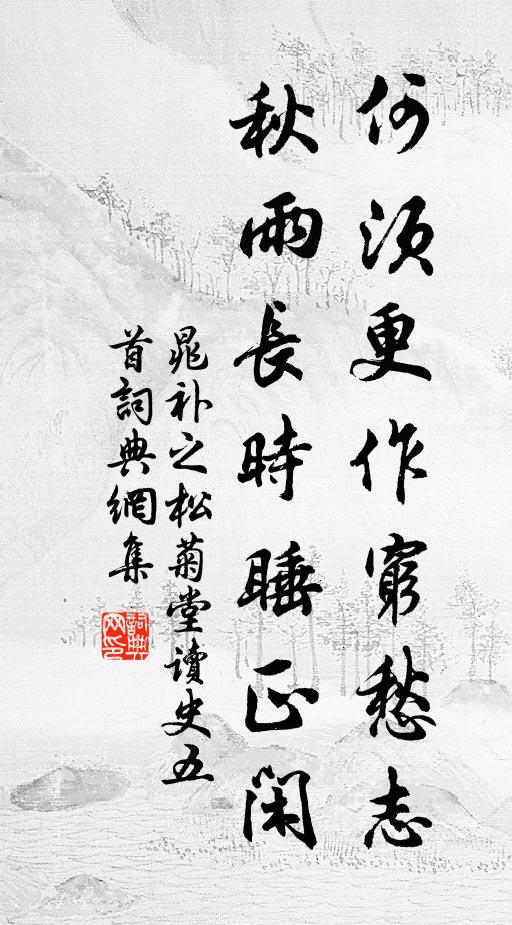 何須更作窮愁志
秋雨長時睡正閑
晁补之松菊堂讀史五
首詞典網集
詞典网印